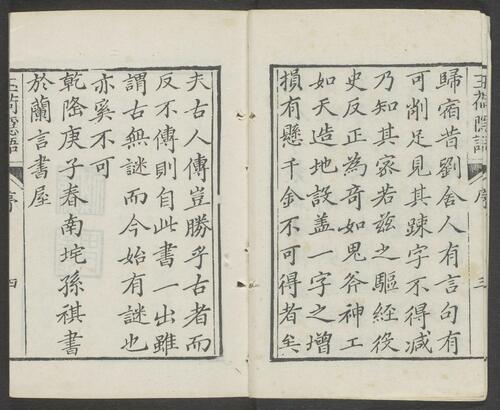 玉荷隱語
序
三
歸宿昔劉舍人有言句有
可削足見其踈字不得減
乃知其家若茲之驅經役
史反正為奇如鬼斧神工
如天造地設蓋一字之增
損有懸千金不可得者矣
夫古人傳豈勝乎古者而
反不傳則自此書一出雖
謂古無謎而今始有謎也
亦奚不可
乾隆庚子春南垞孫祺書
於蘭言書屋
玉荷隱語
序
四